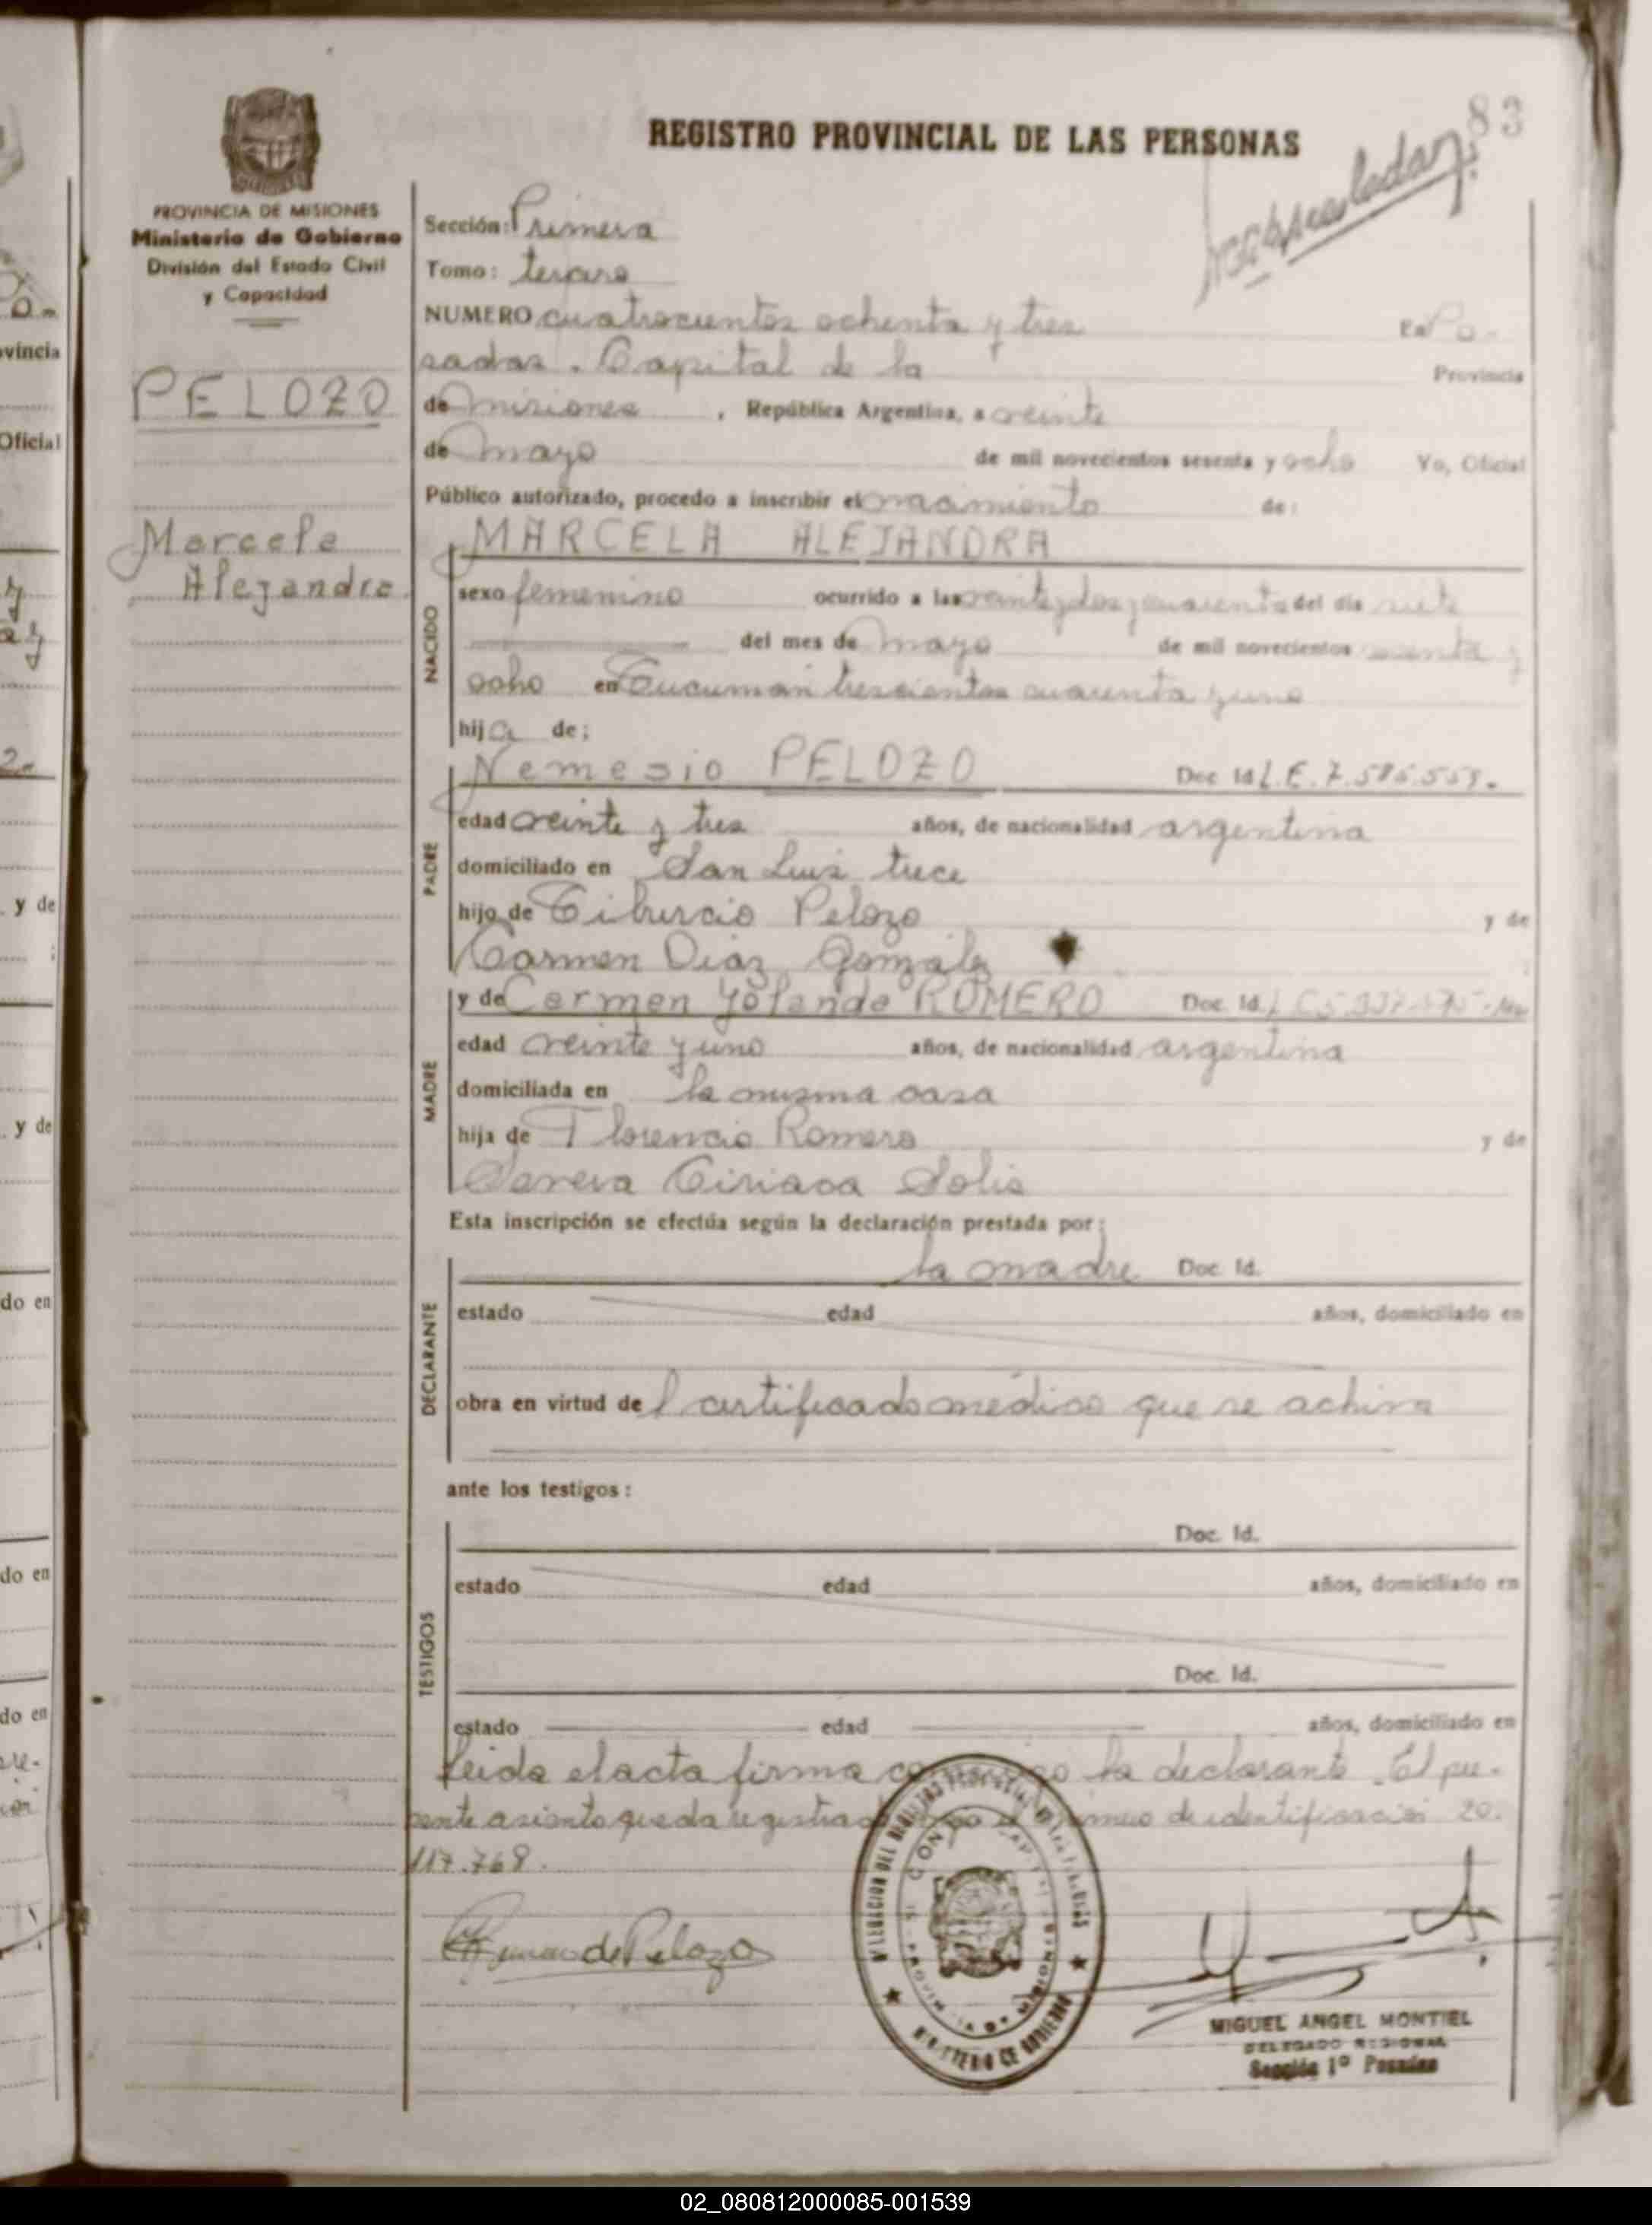 83
REGISTRO PROVINCIAL DE LAS PERSONAS
PROVINCIA DE MISIONES
Ministerio de Gobierno
División del Estado Civil
y Capacidad
Sección: Primera
Tomo: tercero
NUMERO cuatrocientos ochenta y tres En Po-
sadas. Capital de la Provincia
PELOZO
de Misiones, República Argentina, a veinte
de mayo de mil novecientos sesenta y ocho Yo, Oficial
Público autorizado, procedo a inscribir el nacimiento de:
Marcela
Alejandra
MARCELA ALEJANDRA
NACIDO
sexo femenino ocurrido a las veinte y dos y cuarenta del día siete
del mes de mayo de mil novecientos sesenta y
ocho en Tucuman trescientos cuarenta y uno
hija de;
PADRE
Nemesio PELOZO Doc. Id. L.E. 7.
edad veinte y tres años, de nacionalidad argentina
domiciliado en San Luis trece
hijo de Tiburcio Pelozo y de
Carmen Diaz Gonzalez
MADRE
y de Carmen Yolanda ROMERO Doc. Id.
edad veinte y uno años, de nacionalidad argentina
domiciliada en la misma casa
hija de Florencio Romero y de
Ciriaca Solis
Esta inscripción se efectúa según la declaración prestada por:
DECLARANTE
la madre Doc. Id.
estado edad años, domiciliado en
obra en virtud de l certificado médico que se achiva
ante los testigos:
TESTIGOS
Doc. Id.
estado edad años, domiciliado en
Doc. Id.
estado edad años, domiciliado en
Leida el acta firma conmigo la declarante. El pre-
sente asiento queda registrado bajo el número de identificación 20.
117.768.
de Pelozo
MINISTERIO DE GOBIERNO
MIGUEL ANGEL MONTIEL
DELEGADO REGIONAL
Sección 1º Posadas
vincia
Oficial
y de
y de
do en
do en
do en
02_080812000085-001539